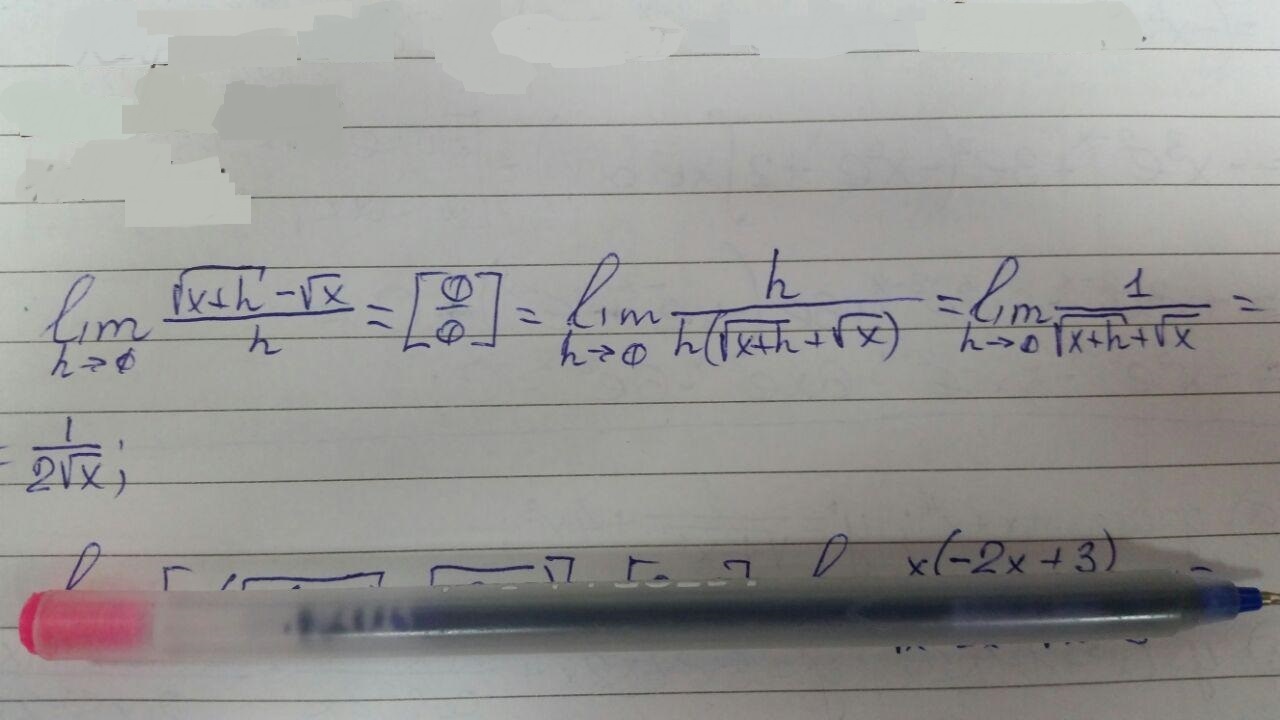 lim h→0 (√(x+h) - √x)/h = [0/0] = lim h→0 h/(h(√(x+h) + √x)) = lim h→0 1/(√(x+h) + √x) =
= 1/(2√x);
x(-2x+3)